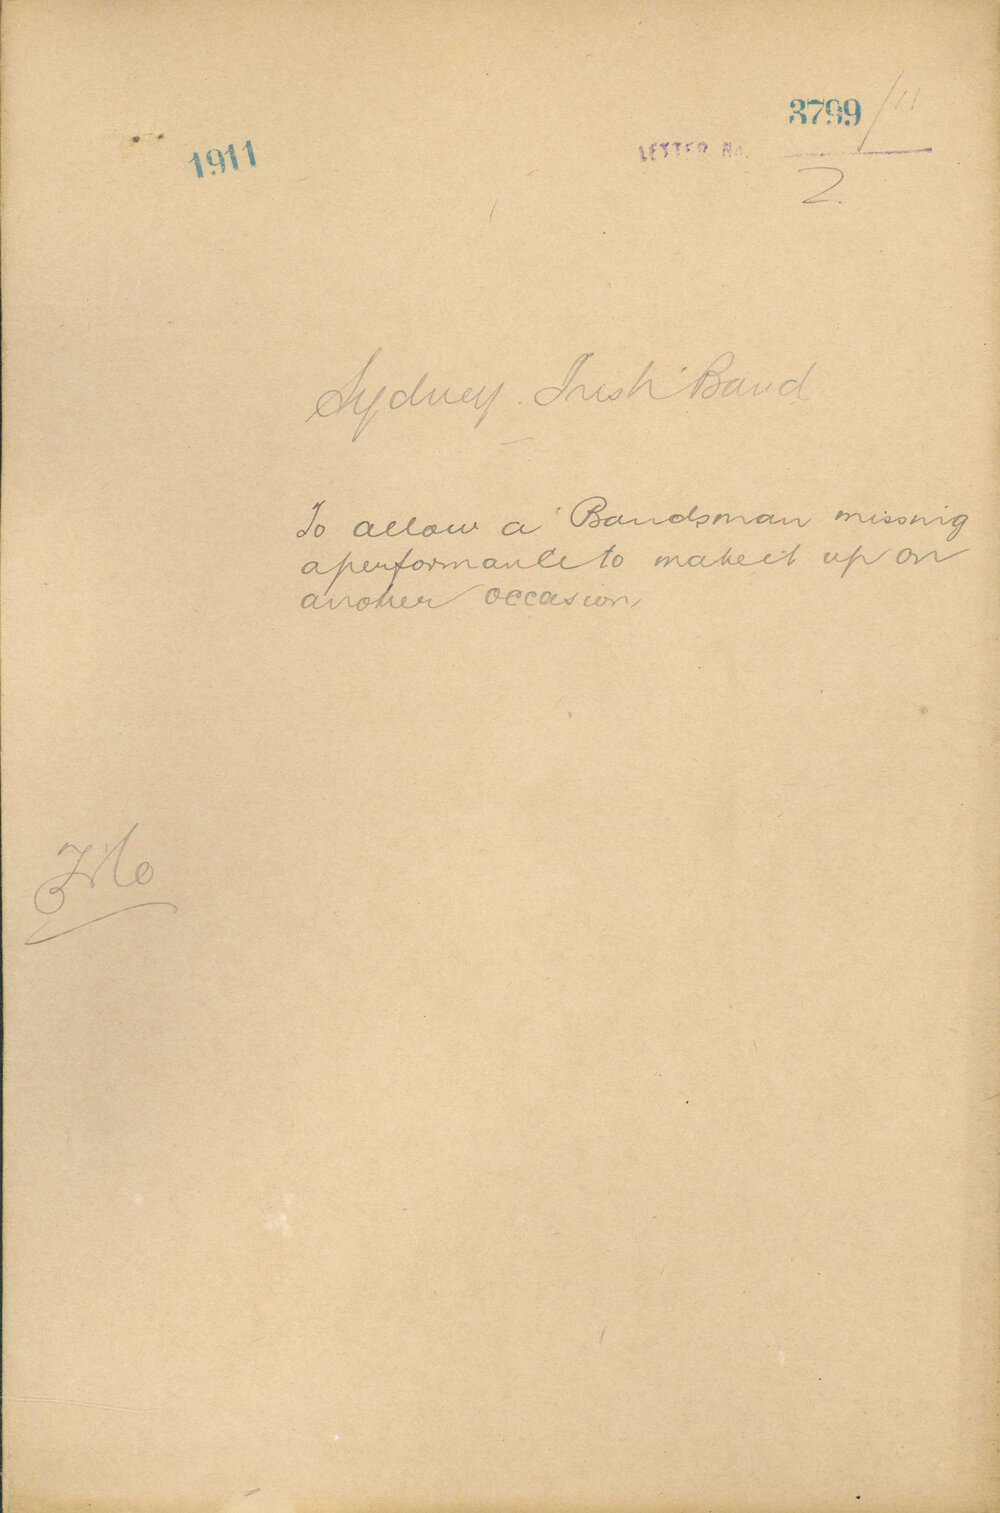 3799/11
1911
LETTER No.
2.
Sydney Irish Band
To allow a Bandsman missing
a performance to make it up on
another occasion,